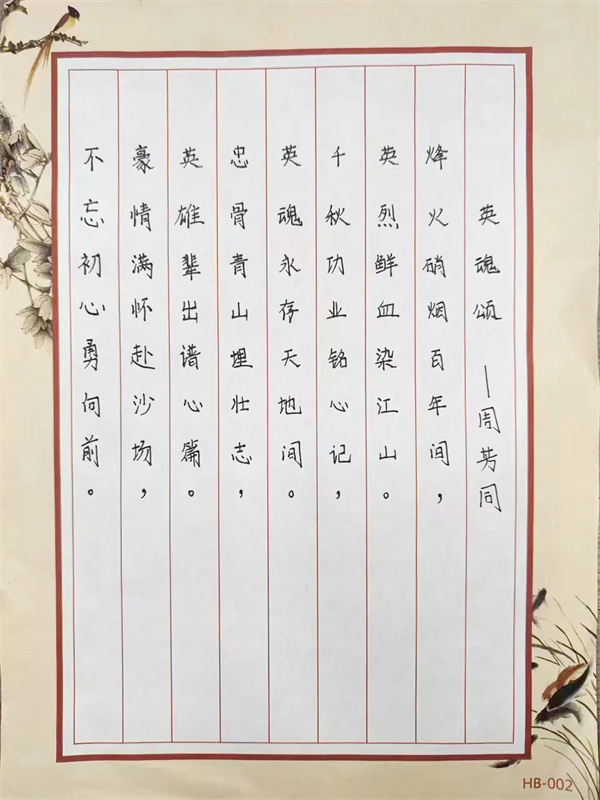 英魂颂 —周芳同
烽火硝烟百年间，
英烈鲜血染江山。
千秋功业铭心记，
英魂永存天地间。
忠骨青山埋壮志，
英雄辈出谱心篇。
豪情满怀赴沙场，
不忘初心勇向前。
HB-002